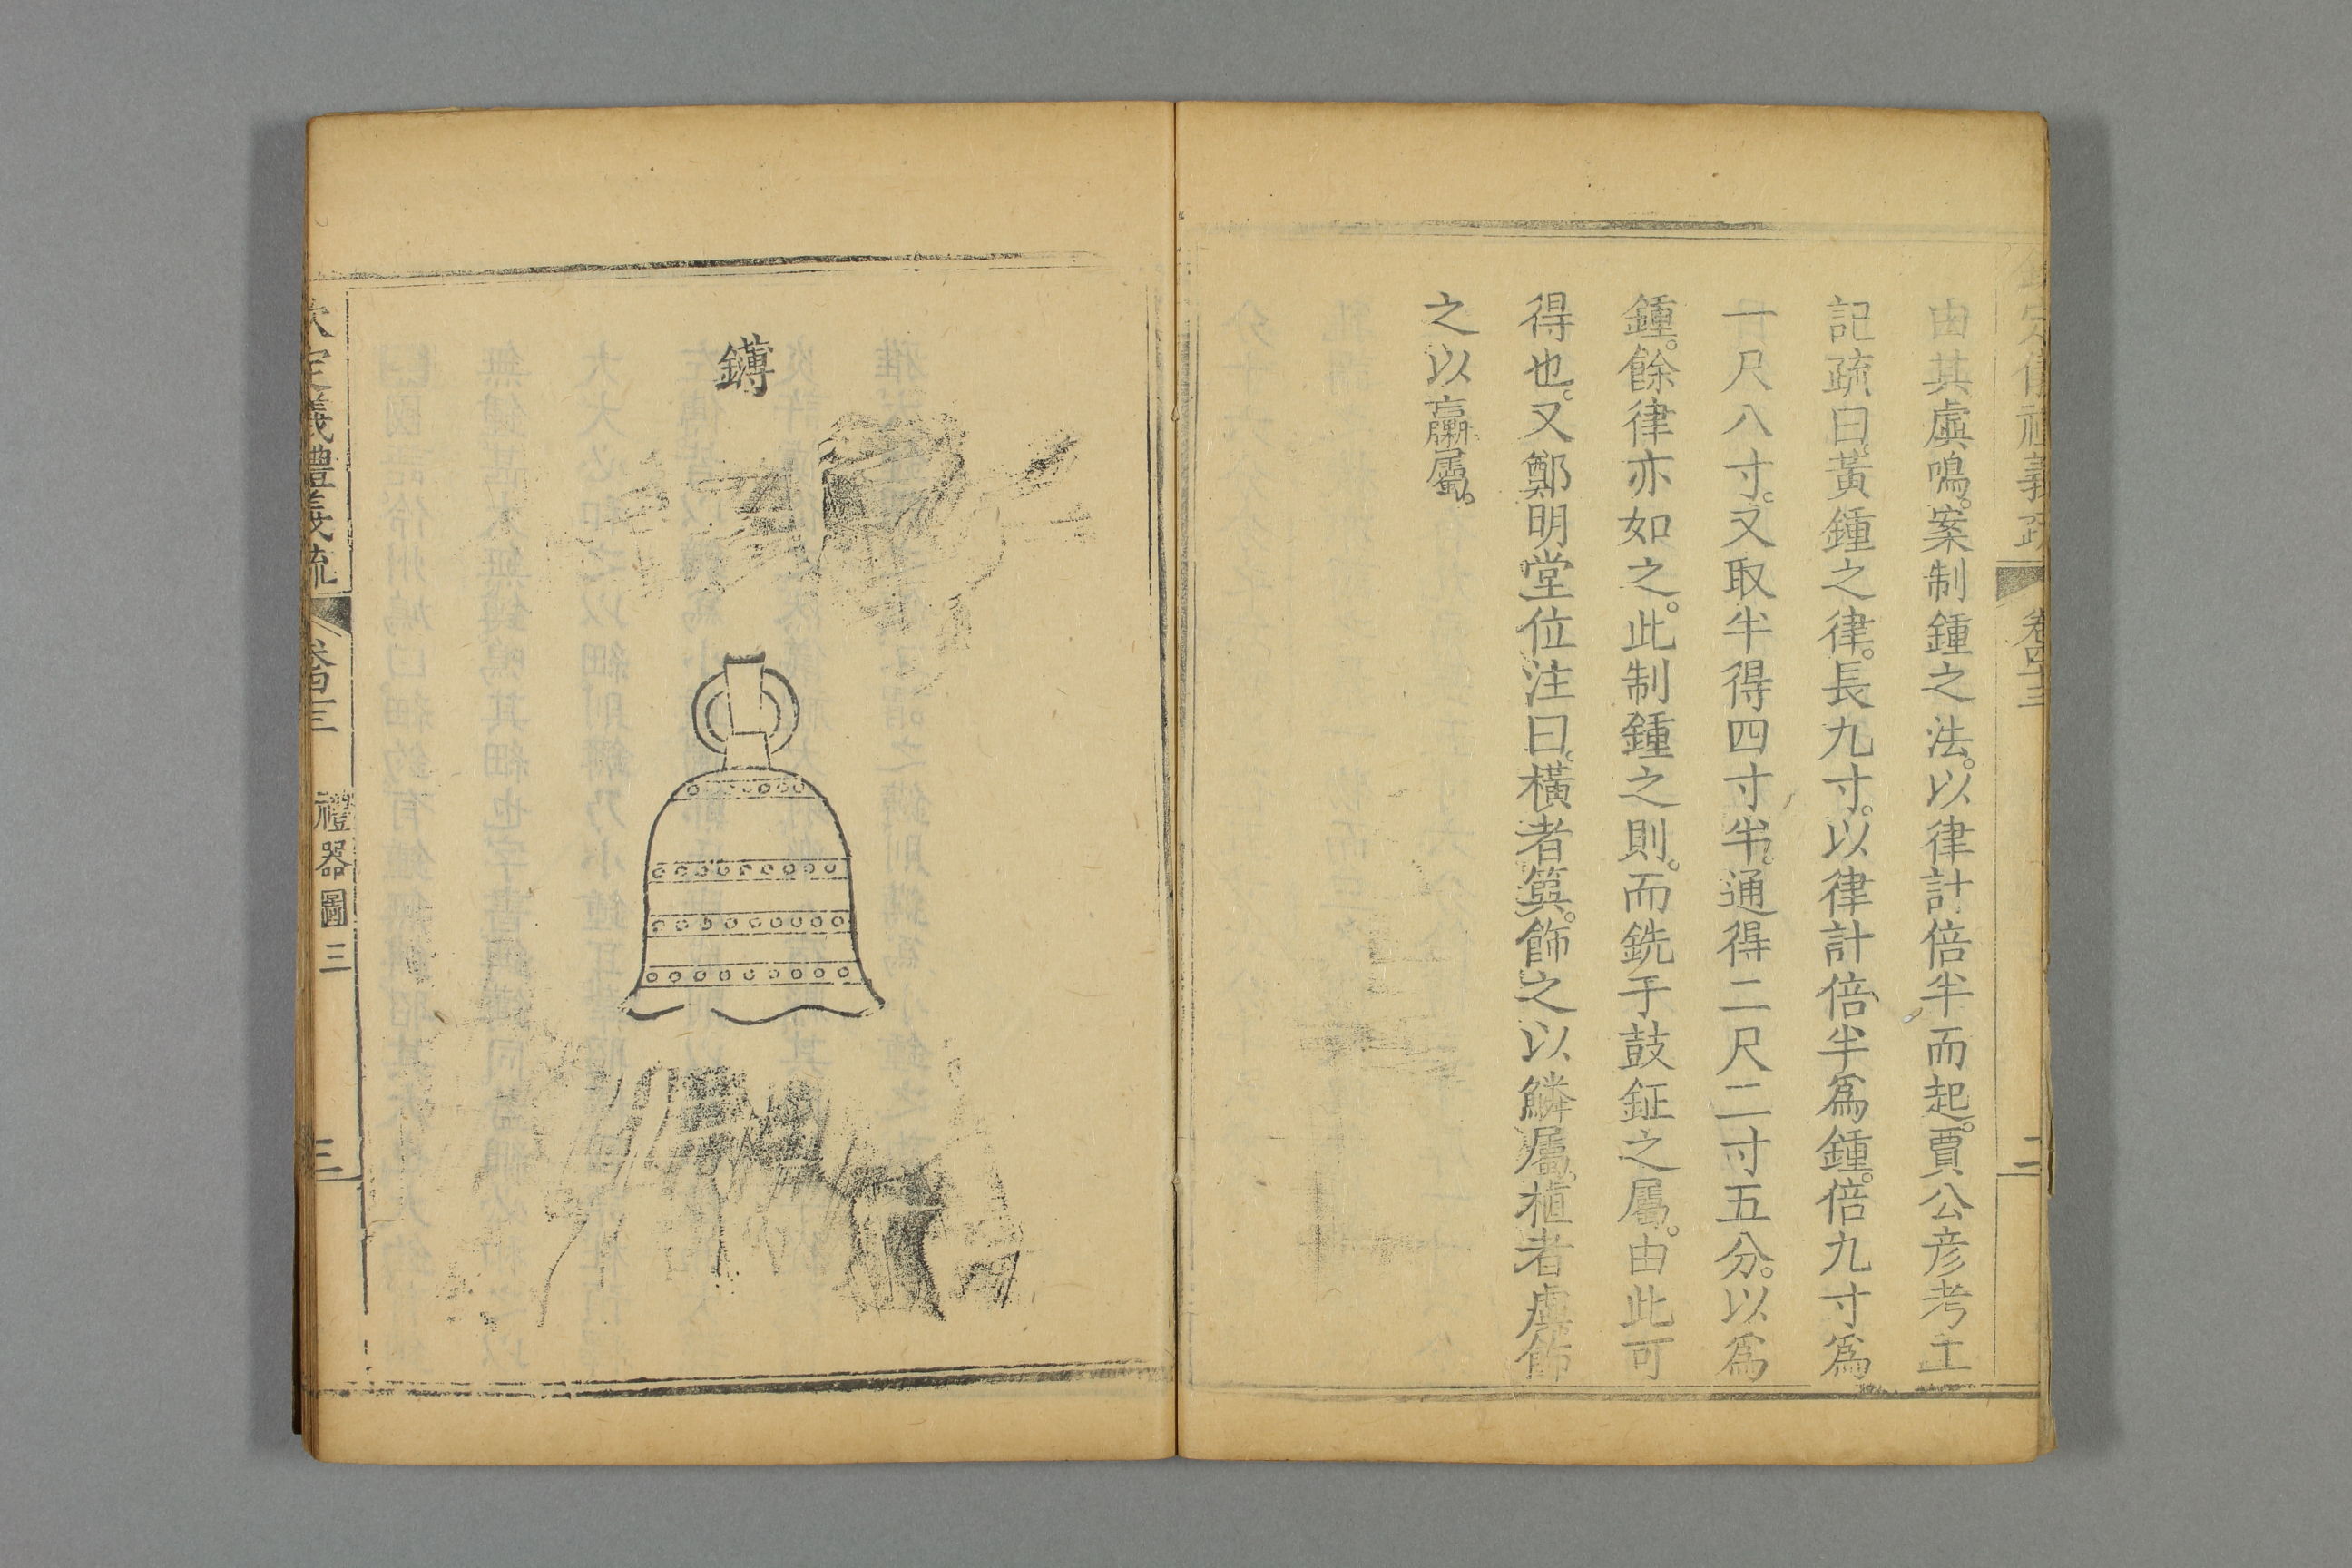 由其虡鳴。案制鍾之法。以律計倍半而起。賈公彥考工
記疏曰。黃鍾之律。長九寸。以律計倍半爲鍾。倍九寸爲
一尺八寸。又取半得四寸半。通得二尺二寸五分。以爲
鍾。餘律亦如之。此制鍾之則。而銑于鼓鉦之屬。由此可
得也。又鄭明堂位注曰。橫者簨。飾之以鱗屬。植者虡。飾
之以臝屬。
鎛
欽定儀禮義疏
卷四十三
禮器圖三
三